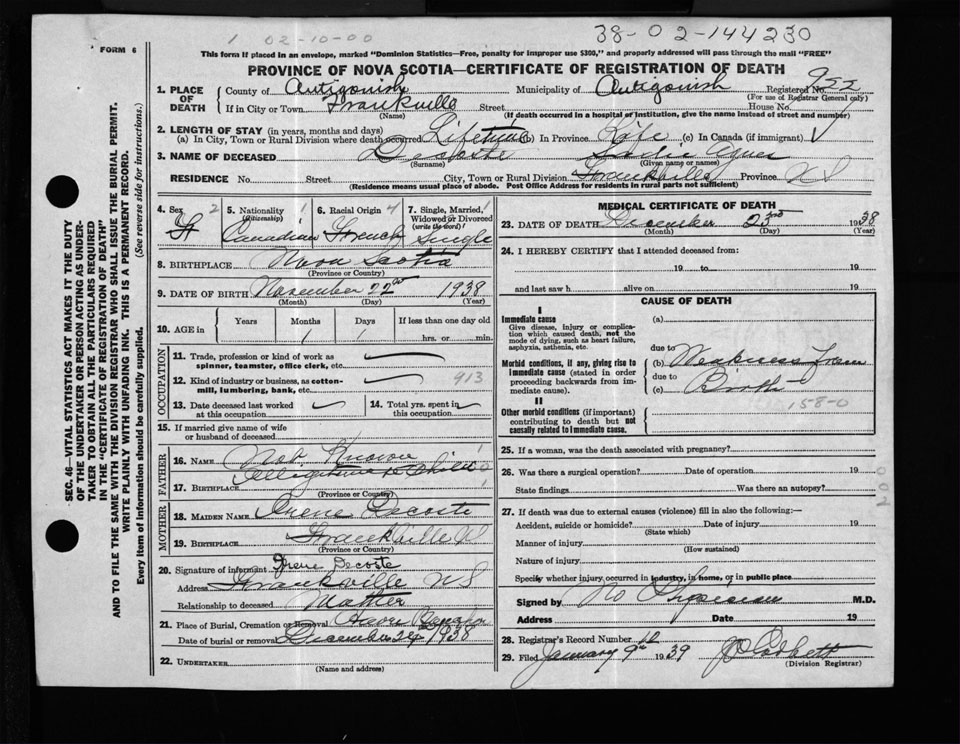 1 02-10-00
38-02-144230
FORM 6
This form if placed in an envelope, marked "Dominion Statistics—Free, penalty for improper use $300," and properly addressed will pass through the mail "FREE"
PROVINCE OF NOVA SCOTIA—CERTIFICATE OF REGISTRATION OF DEATH
1. PLACE OF DEATH
County of Antigonish Municipality of Antigonish Registered No. 922
(For use of Registrar General only)
If in City or Town Frankville Street House No.
(Name) (If death occurred in a hospital or institution, give the name instead of street and number)
2. LENGTH OF STAY (in years, months and days)
(a) In City, Town or Rural Division where death occurred Lifetime (b) In Province Life (c) In Canada (if immigrant)
3. NAME OF DECEASED Decoste Sadie Agnes
(Surname) (Given name or names)
RESIDENCE No. Street City, Town or Rural Division Frankville Province NS
(Residence means usual place of abode. Post Office Address for residents in rural parts not sufficient)
4. Sex 2 F
5. Nationality 1 (Citizenship) Canadian
6. Racial Origin 4 French
7. Single, Married, Widowed or Divorced (write the word) 1 Single
8. BIRTHPLACE Nova Scotia
(Province or Country)
9. DATE OF BIRTH November 22nd 1938
(Month) (Day) (Year)
10. AGE in Years Months Days If less than one day old
1 1 hrs. or min.
OCCUPATION
11. Trade, profession or kind of work as spinner, teamster, office clerk, etc.
12. Kind of industry or business, as cotton-mill, lumbering, bank, etc. 913
13. Date deceased last worked at this occupation
14. Total yrs. spent in this occupation
15. If married give name of wife or husband of deceased
FATHER
16. NAME Not Known
Illegitimate Child
17. BIRTHPLACE
(Province or Country)
MOTHER
18. MAIDEN NAME Irene Decoste
19. BIRTHPLACE Frankville NS
(Province or Country)
20. Signature of informant Irene Decoste
Address Frankville NS
Relationship to deceased Mother
21. Place of Burial, Cremation or Removal Havre Boucher
Date of burial or removal December 24 1938
22. UNDERTAKER
(Name and address)
MEDICAL CERTIFICATE OF DEATH
23. DATE OF DEATH December 23rd 1938
(Month) (Day) (Year)
24. I HEREBY CERTIFY that I attended deceased from:
19 to 19
and last saw h alive on 19
CAUSE OF DEATH
I
Immediate cause
Give disease, injury or complication which caused death, not the mode of dying, such as heart failure, asphyxia, asthenia, etc.
(a)
due to
Morbid conditions, if any, giving rise to immediate cause (stated in order proceeding backwards from immediate cause).
(b) Weakness from
due to
(c) Birth
158-0
II
Other morbid conditions (if important) contributing to death but not causally related to immediate cause.
25. If a woman, was the death associated with pregnancy?
26. Was there a surgical operation? Date of operation 19
State findings Was there an autopsy?
27. If death was due to external causes (violence) fill in also the following:—
Accident, suicide or homicide? Date of injury 19
(State which)
Manner of injury
(How sustained)
Nature of injury
Specify whether injury occurred in industry, in home, or in public place
Signed by No Physician M.D.
Address Date 19
28. Registrar's Record Number
29. Filed January 9th 1939
(Division Registrar)
SEC. 46—VITAL STATISTICS ACT MAKES IT THE DUTY
OF THE UNDERTAKER OR PERSON ACTING AS UNDER-
TAKER TO OBTAIN ALL THE PARTICULARS REQUIRED
IN THE "CERTIFICATE OF REGISTRATION OF DEATH"
AND TO FILE THE SAME WITH THE DIVISION REGISTRAR WHO SHALL ISSUE THE BURIAL PERMIT.
WRITE PLAINLY WITH UNFADING INK. THIS IS A PERMANENT RECORD.
Every item of information should be carefully supplied. (See reverse side for instructions.)